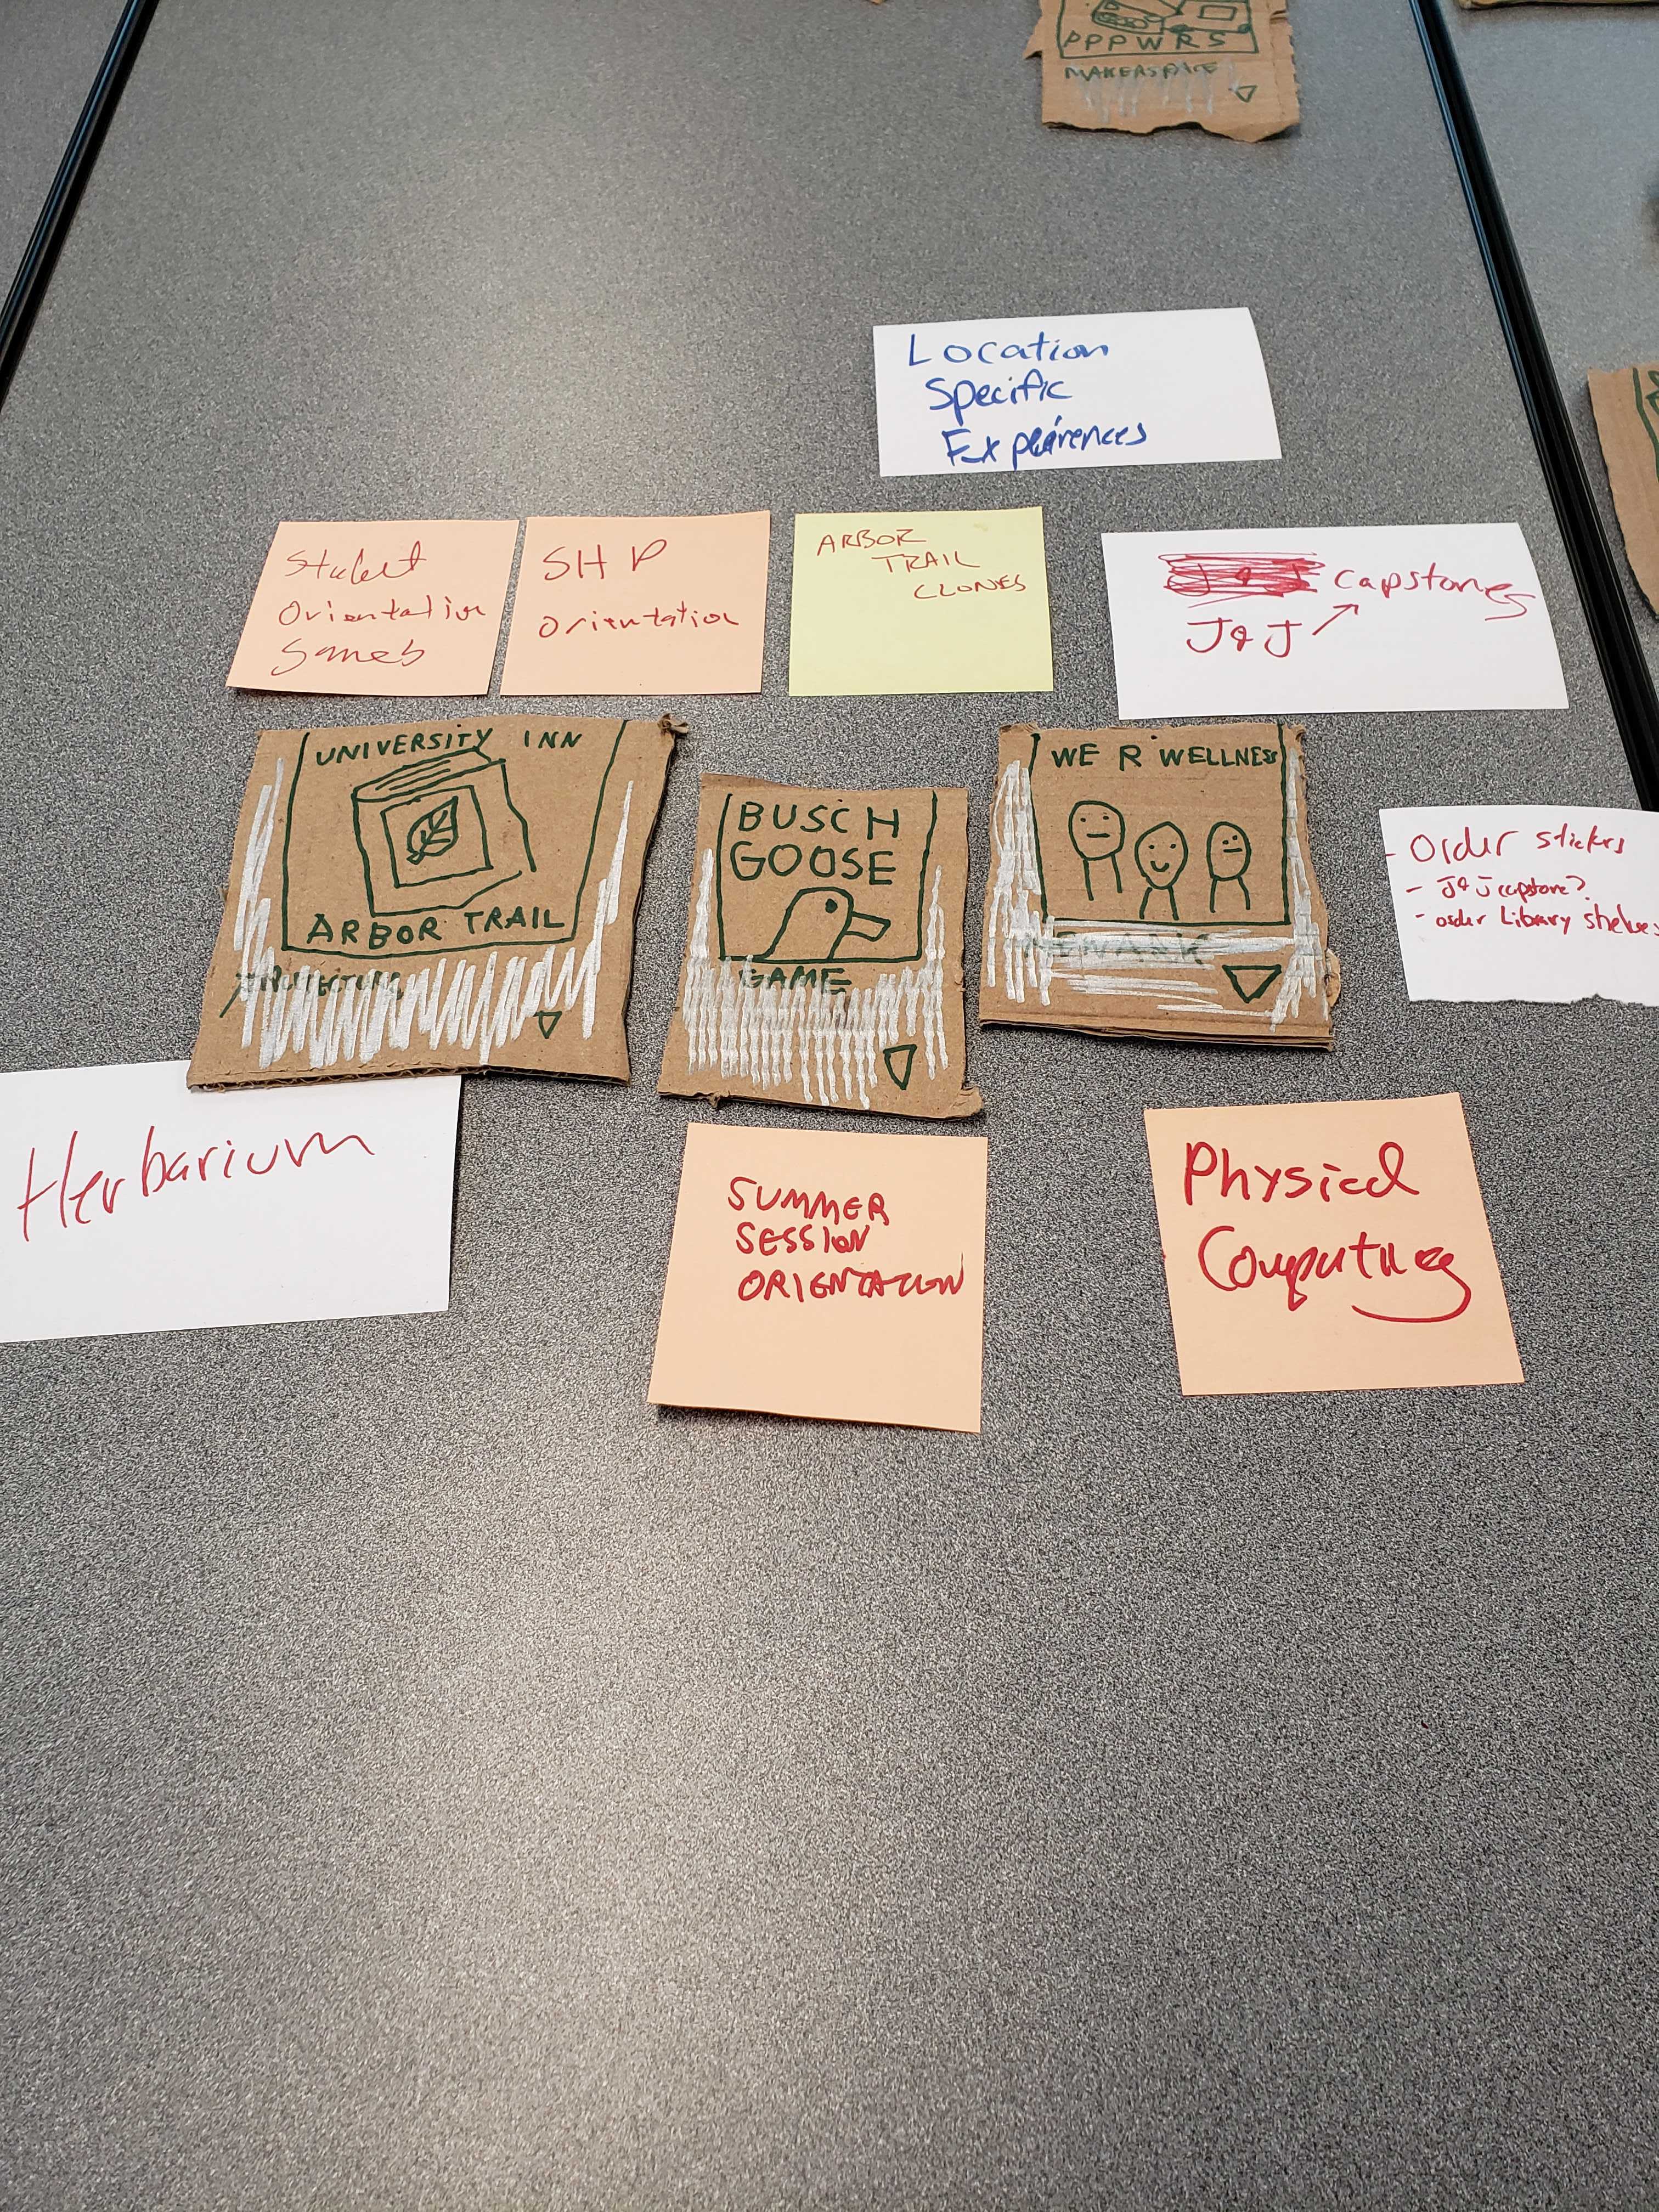 PPPWRS
MAKERSPACE
Location
Specific
Expeirences
Student
Orientation
Games
SHP
Orientation
ARBOR
TRAIL
CLONES
J&J capstones
J&J
UNIVERSITY INN
ARBOR TRAIL
BUSCH
GOOSE
GAME
WE R WELLNESS
NEWARK
- Order stickers
- J&J capstone?
- order Library shelves
Herbarium
SUMMER
SESSION
ORIENTATION
Physical
Computing